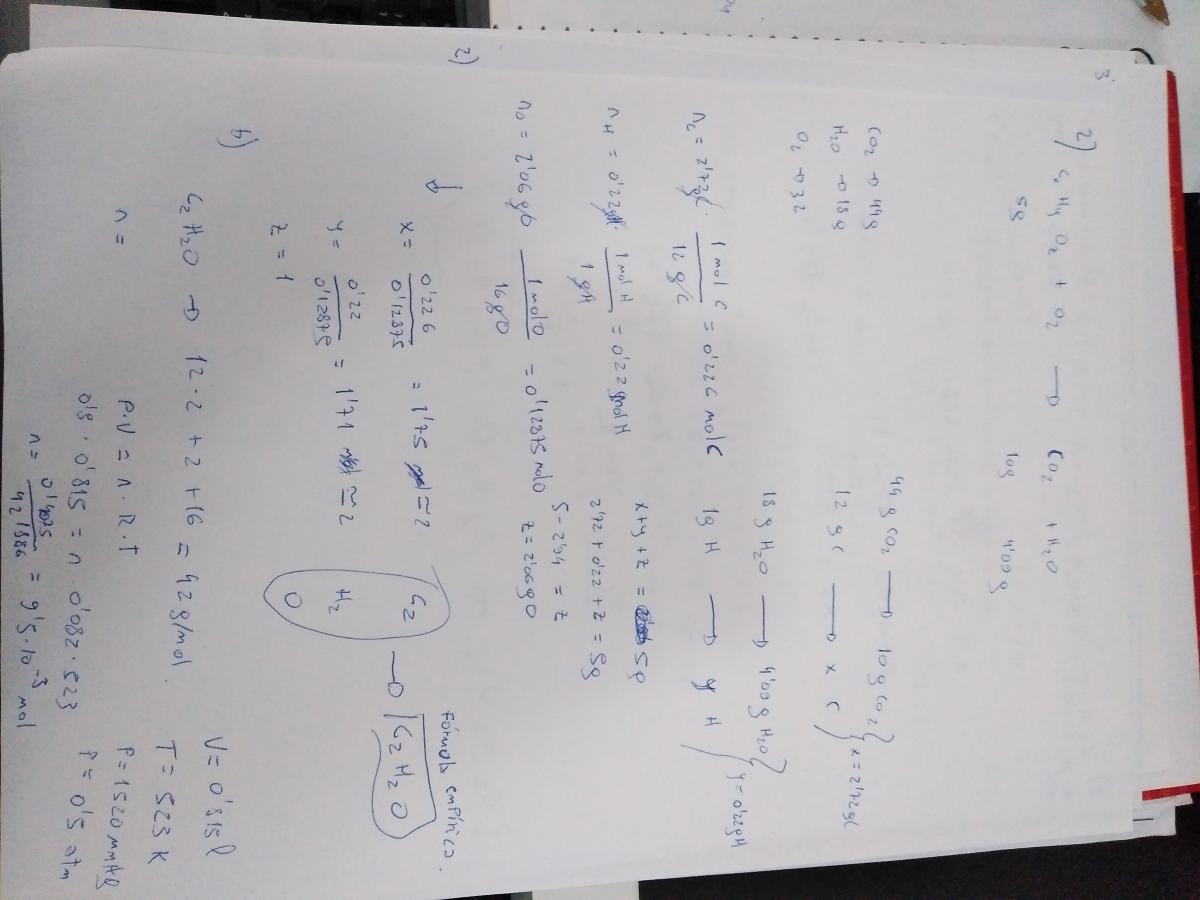 2) Cx Hy Oz + O2 → CO2 + H2O
5g 10g 4'09g
CO2 → 44g
H2O → 18g
O2 → 32
44g CO2 → 10g CO2 }
12 g C → x C } x = 2'72gC
18 g H2O → 4'09g H2O }
1g H → y H } y = 0'22gH
nc = 2'72gC · 1 mol C / 12 g C = 0'226 mol C
nH = 0'22gH 1 mol H / 1 gH = 0'22 mol H
nO = 2'06gO 1 mol O / 16gO = 0'12875 mol O
x+y+z = 5g
2'72 + 0'22 + z = 5g
5 - 2'94 = z
z = 2'06gO
2)
x = 0'226 / 0'12875 = 1'75 ≃ 2
y = 0'22 / 0'12875 = 1'71 ≃ 2
z = 1
C2
H2
O
→ C2 H2 O
Fórmula empírica.
b)
C2H2O → 12·2 + 2 + 16 = 42g/mol.
V = 0'815 l
T = 523 K
P = 1520 mmHg
P = 0'5 atm
n =
P·V = n·R·T
0'5 · 0'815 = n · 0'082 · 523
n = 0'4075 / 42'886 = 9'5·10⁻³ mol